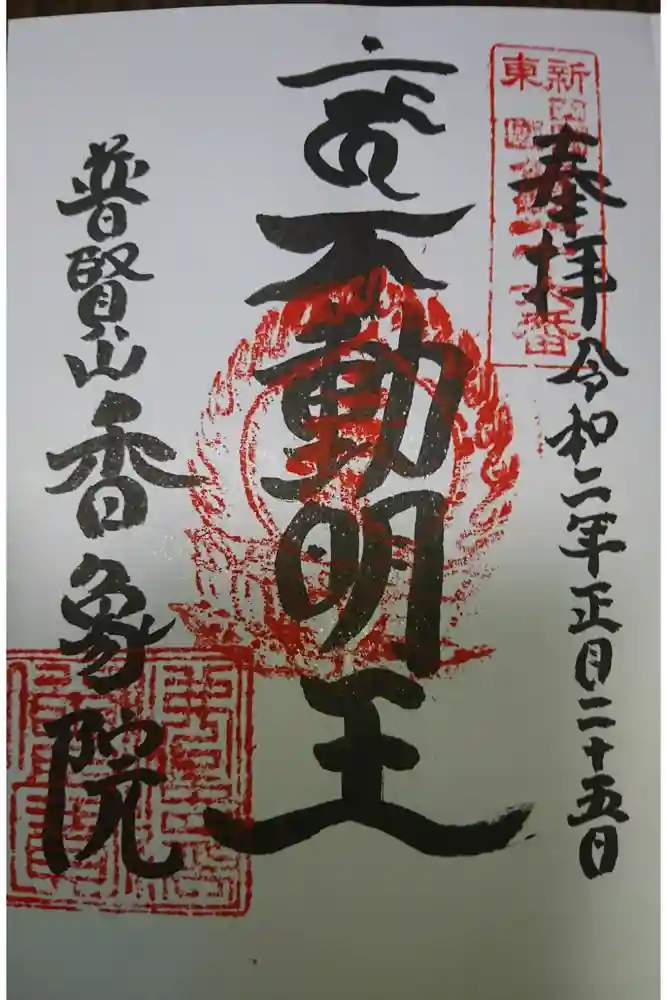 奉拝
令和二年正月二十五日
不動明王
普賢山
香象院